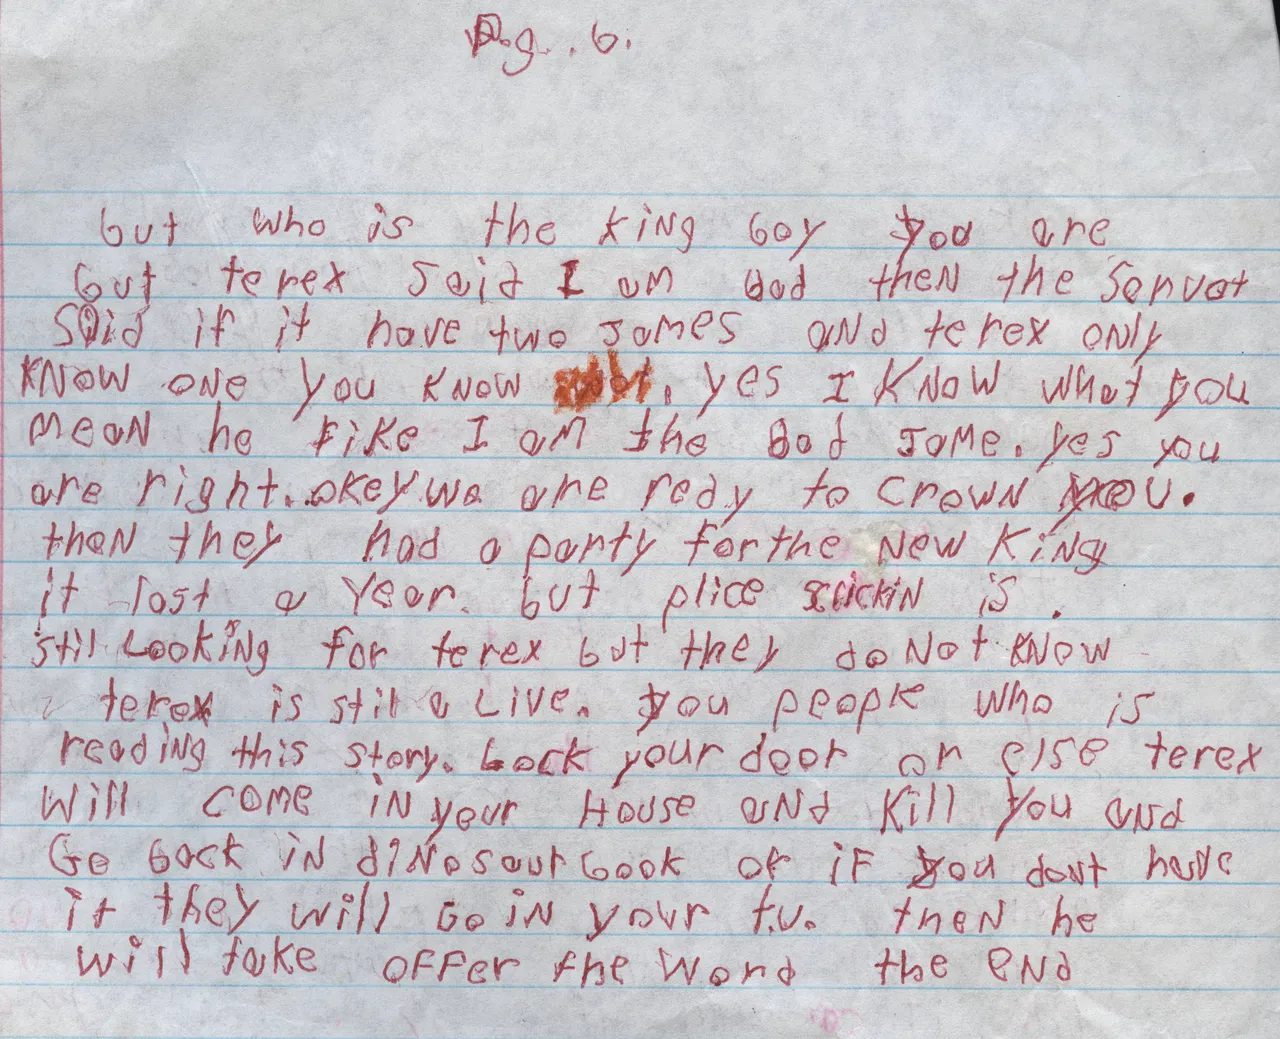 Pg. 6.
but who is the king boy you are
but terex said I am bad then the Servat
said if it have two james and terex only
know one you know . yes I know what you
mean he like I am the bad jame. yes you
are right. okey we are redy to crown you.
then they had a party for the new king
it last a year. but plice is.
stil Looking for terex but they do Not know
terex is stil a Live. you people who is
reading this story. Lock your door or else terex
will come in your House and kill you and
Go back in dinosaur book or if you dont have
it they will Go in your t.v. then he
will take offer the word the end